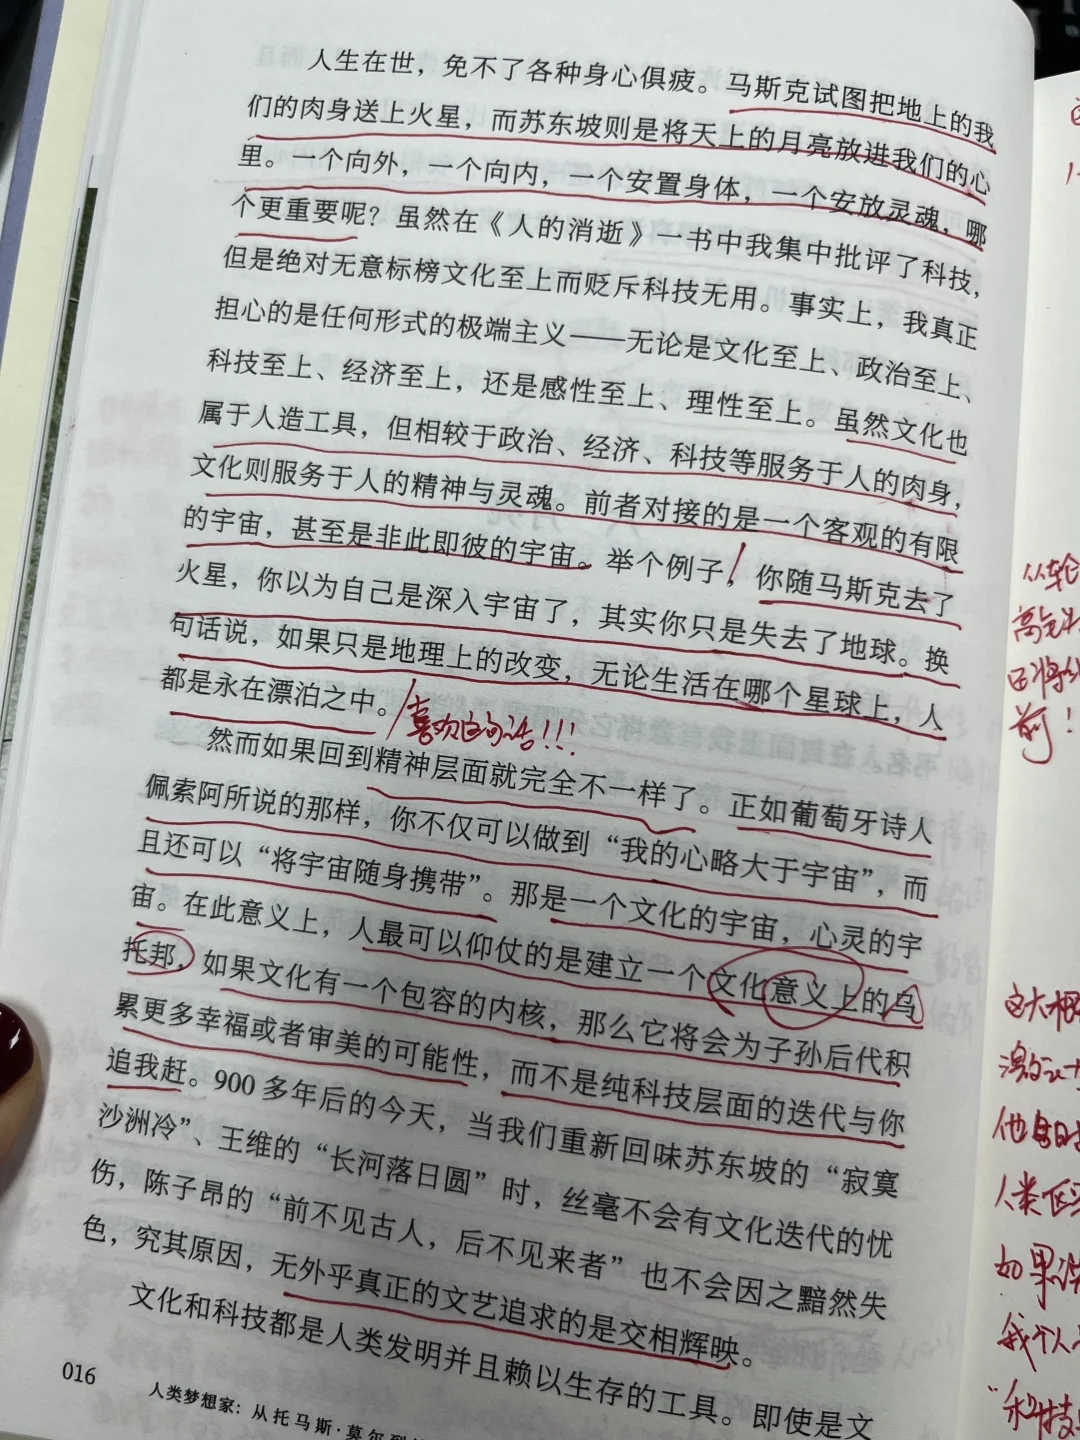 人生在世，免不了各种身心俱疲。马斯克试图把地上的我
们的肉身送上火星，而苏东坡则是将天上的月亮放进我们的心
里。一个向外，一个向内，一个安置身体，一个安放灵魂，哪
个更重要呢？虽然在《人的消逝》一书中我集中批评了科技，
但是绝对无意标榜文化至上而贬斥科技无用。事实上，我真正
担心的是任何形式的极端主义——无论是文化至上、政治至上、
科技至上、经济至上，还是感性至上、理性至上。虽然文化也
属于人造工具，但相较于政治、经济、科技等服务于人的肉身，
文化则服务于人的精神与灵魂。前者对接的是一个客观的有限
的宇宙，甚至是非此即彼的宇宙。举个例子，你随马斯克去了
火星，你以为自己是深入宇宙了，其实你只是失去了地球。换
句话说，如果只是地理上的改变，无论生活在哪个星球上，人
都是永在漂泊之中。
喜欢这句话!!!
然而如果回到精神层面就完全不一样了。正如葡萄牙诗人
佩索阿所说的那样，你不仅可以做到“我的心略大于宇宙”，而
且还可以“将宇宙随身携带”。那是一个文化的宇宙，心灵的宇
宙。在此意义上，人最可以仰仗的是建立一个文化意义上的乌
托邦，如果文化有一个包容的内核，那么它将会为子孙后代积
累更多幸福或者审美的可能性，而不是纯科技层面的迭代与你
追我赶。900多年后的今天，当我们重新回味苏东坡的“寂寞
沙洲冷”、王维的“长河落日圆”时，丝毫不会有文化迭代的忧
伤，陈子昂的“前不见古人，后不见来者”也不会因之黯然失
色，究其原因，无外乎真正的文艺追求的是交相辉映。
文化和科技都是人类发明并且赖以生存的工具。即使是文
016
人类梦想家：从托马斯·莫尔到
从轮
前！
这大概
他
人类
如果说
我个人
“科技